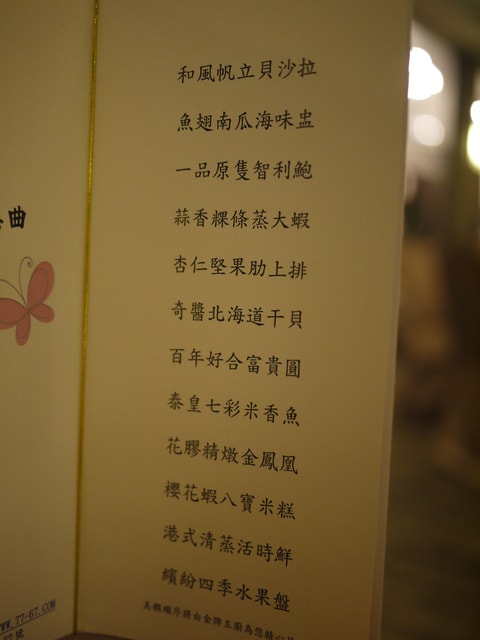 曲
和風帆立貝沙拉
魚翅南瓜海味盅
一品原隻智利鮑
蒜香粿條蒸大蝦
杏仁堅果肋上排
奇醬北海道干貝
百年好合富貴圓
泰皇七彩米香魚
花膠精燉金鳳凰
櫻花蝦八寶米糕
港式清蒸活時鮮
繽紛四季水果盤
美饌順序將由金牌主廚為您精心
WWW.77-67.COM
號